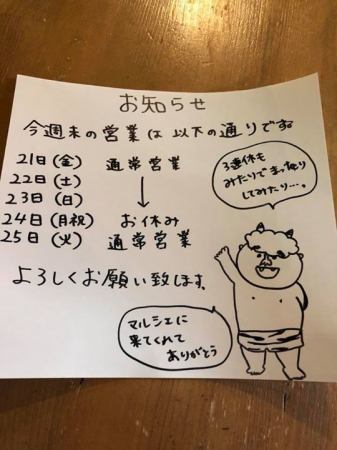 お知らせ
今週末の営業は以下の通りです
21日(金) 通常営業
22日(土)
23日(日) ↓
24日(月祝) お休み
25日(火) 通常営業
よろしくお願い致します。
3連休も
みたりでまったり
してみたり…。
マルシェに
来てくれて
ありがとう